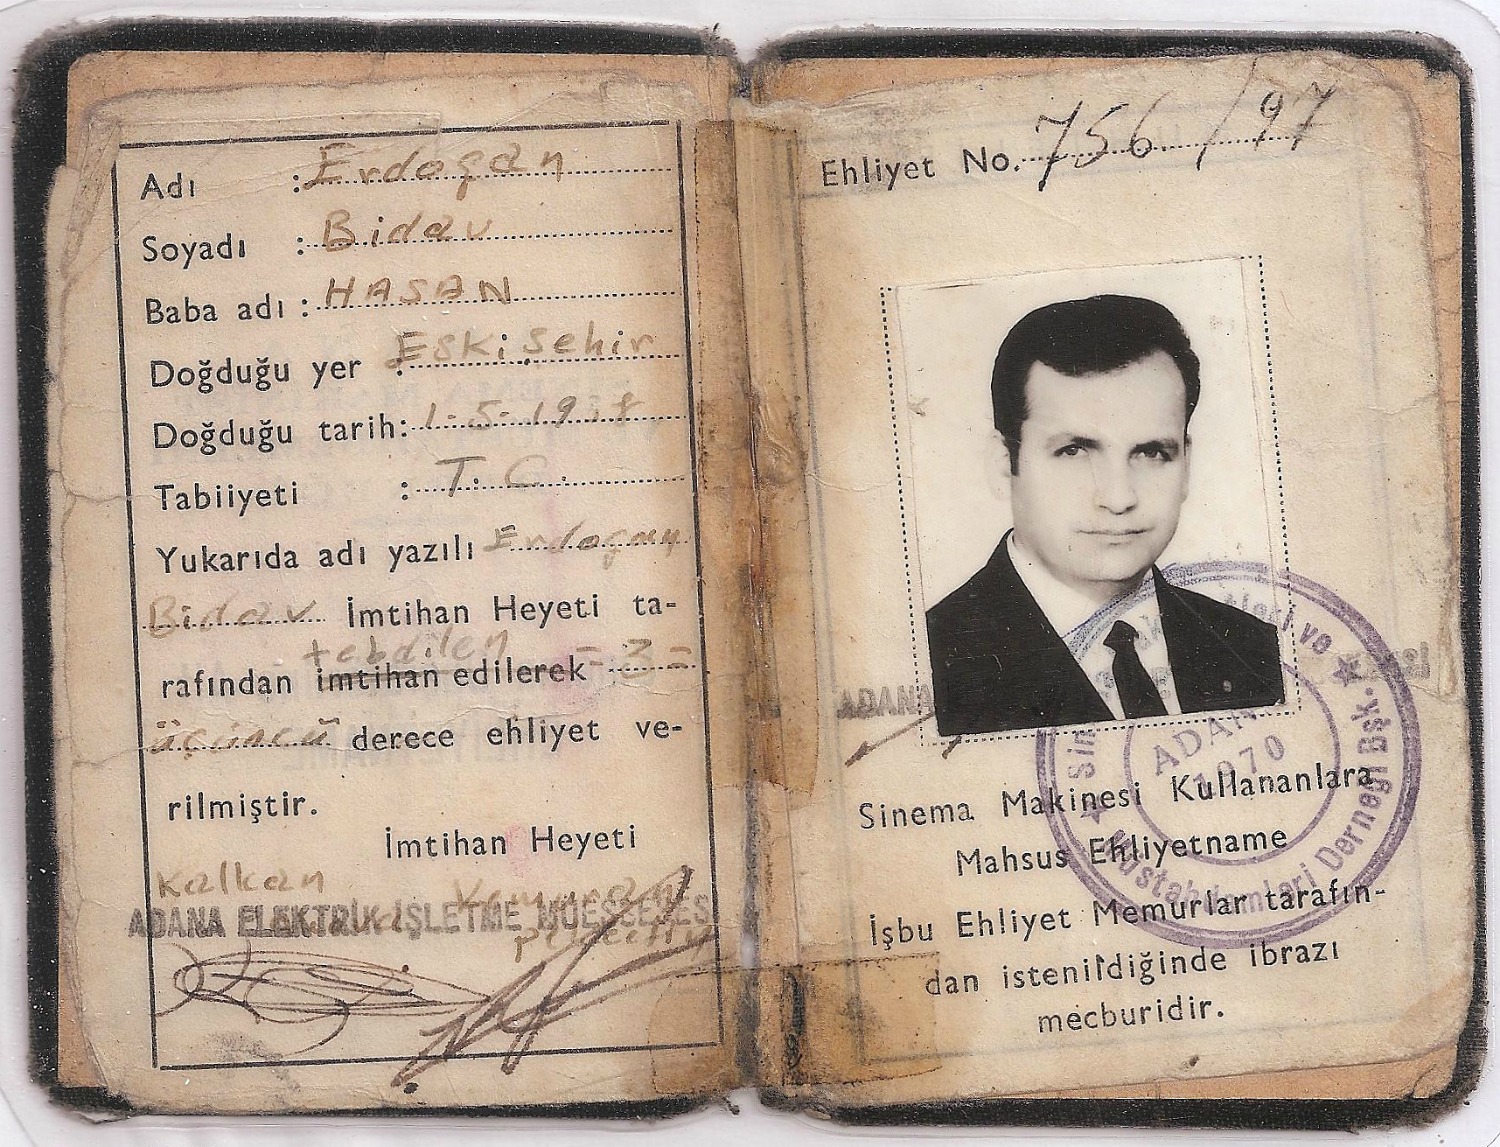 Adı : Erdoğan
Soyadı : Bidav
Baba adı : HASAN
Doğduğu yer : Eskişehir
Doğduğu tarih: 1-5-19
Tabiiyeti : T. C.
Yukarıda adı yazılı Erdoğan
Bidav İmtihan Heyeti ta-
tebdilen
rafından imtihan edilerek -3-
üçüncü derece ehliyet ve-
rilmiştir.
İmtihan Heyeti
Kalkan
ADANA ELEKTRİK İŞLETME MÜESSESES
Ehliyet No. 756/97
ADANA
ADANA
1970
Müstahdemleri Derneği Bşk.
Sinema Makinesi Kullananlara
Mahsus Ehliyetname
İşbu Ehliyet Memurlar tarafın-
dan istenildiğinde ibrazı
mecburidir.